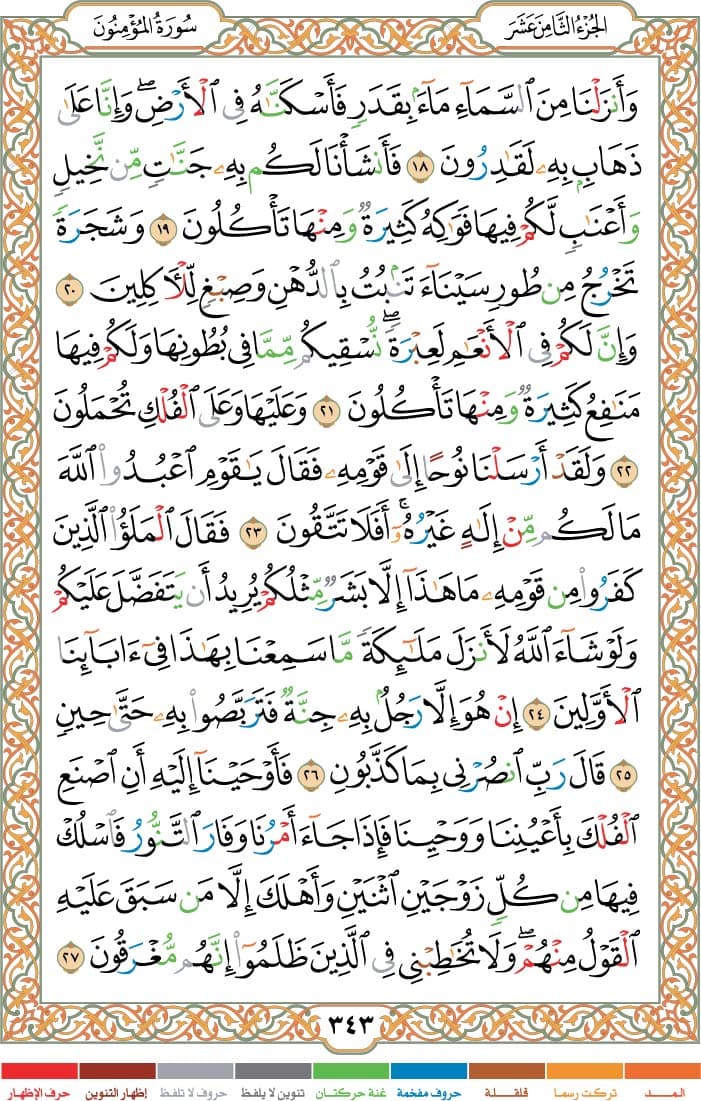 الجُزْءُ الثَّامِنَ عَشَرَ
سُورَةُ المُؤْمِنُونَ
وَأَنزَلْنَا مِنَ ٱلسَّمَآءِ مَآءَۢ بِقَدَرٍ فَأَسْكَنَّٰهُ فِى ٱلْأَرْضِۖ وَإِنَّا عَلَىٰ
ذَهَابِۭ بِهِۦ لَقَٰدِرُونَ ١٨ فَأَنشَأْنَا لَكُم بِهِۦ جَنَّٰتٍ مِّن نَّخِيلٍ
وَأَعْنَٰبٍ لَّكُمْ فِيهَا فَوَٰكِهُ كَثِيرَةٌ وَمِنْهَا تَأْكُلُونَ ١٩ وَشَجَرَةً
تَخْرُجُ مِن طُورِ سَيْنَآءَ تَنۢبُتُ بِٱلدُّهْنِ وَصِبْغٍ لِّلْءَاكِلِينَ ٢٠
وَإِنَّ لَكُمْ فِى ٱلْأَنْعَٰمِ لَعِبْرَةًۖ نُّسْقِيكُم مِّمَّا فِى بُطُونِهَا وَلَكُمْ فِيهَا
مَنَٰفِعُ كَثِيرَةٌ وَمِنْهَا تَأْكُلُونَ ٢١ وَعَلَيْهَا وَعَلَى ٱلْفُلْكِ تُحْمَلُونَ
٢٢ وَلَقَدْ أَرْسَلْنَا نُوحًا إِلَىٰ قَوْمِهِۦ فَقَالَ يَٰقَوْمِ ٱعْبُدُوا۟ ٱللَّهَ
مَا لَكُم مِّنْ إِلَٰهٍ غَيْرُهُۥٓۚ أَفَلَا تَتَّقُونَ ٢٣ فَقَالَ ٱلْمَلَؤُا۟ ٱلَّذِينَ
كَفَرُوا۟ مِن قَوْمِهِۦ مَا هَٰذَآ إِلَّا بَشَرٌ مِّثْلُكُمْ يُرِيدُ أَن يَتَفَضَّلَ عَلَيْكُمْ
وَلَوْ شَآءَ ٱللَّهُ لَأَنزَلَ مَلَٰٓئِكَةً مَّا سَمِعْنَا بِهَٰذَا فِىٓ ءَابَآئِنَا
ٱلْأَوَّلِينَ ٢٤ إِنْ هُوَ إِلَّا رَجُلُۢ بِهِۦ جِنَّةٌ فَتَرَبَّصُوا۟ بِهِۦ حَتَّىٰ حِينٍ
٢٥ قَالَ رَبِّ ٱنصُرْنِى بِمَا كَذَّبُونِ ٢٦ فَأَوْحَيْنَآ إِلَيْهِ أَنِ ٱصْنَعِ
ٱلْفُلْكَ بِأَعْيُنِنَا وَوَحْيِنَا فَإِذَا جَآءَ أَمْرُنَا وَفَارَ ٱلتَّنُّورُ فَٱسْلُكْ
فِيهَا مِن كُلٍّ زَوْجَيْنِ ٱثْنَيْنِ وَأَهْلَكَ إِلَّا مَن سَبَقَ عَلَيْهِ
ٱلْقَوْلُ مِنْهُمْۖ وَلَا تُخَٰطِبْنِى فِى ٱلَّذِينَ ظَلَمُوٓا۟ إِنَّهُم مُّغْرَقُونَ ٢٧
٣٤٣
المــد تركت رسما قلقلة حروف مفخمة غنة حركتان تنوين لا يلفظ حروف لا تلفظ إظهار التنوين حرف الإظهار